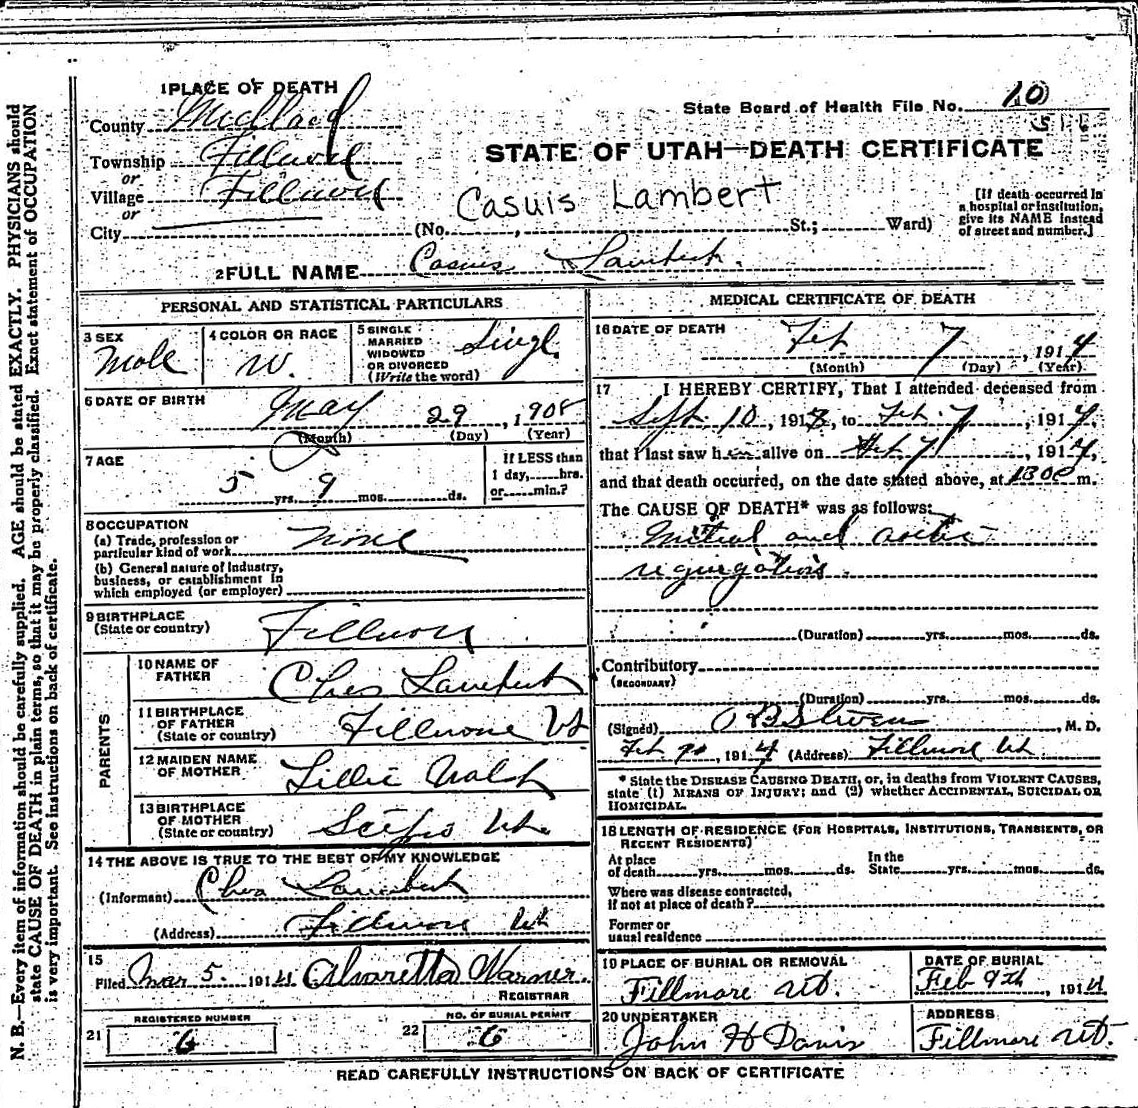 1 PLACE OF DEATH
State Board of Health File No. 10
County Millard
Township Fillmore
or
STATE OF UTAH—DEATH CERTIFICATE
Village Fillmore
or
Casuis Lambert
City (No. , St.; Ward)
[If death occurred in
a hospital or institution,
give its NAME instead
of street and number.]
2 FULL NAME Casuis Lambert.
PERSONAL AND STATISTICAL PARTICULARS
3 SEX
Male
4 COLOR OR RACE
W.
5 SINGLE
MARRIED
WIDOWED
OR DIVORCED
(Write the word)
Singl
6 DATE OF BIRTH
May 29, 1908
(Month) (Day) (Year)
7 AGE
5 yrs. 9 mos. ds.
If LESS than
1 day, hrs.
or min.?
8 OCCUPATION
(a) Trade, profession or
particular kind of work None
(b) General nature of industry,
business, or establishment in
which employed (or employer)
9 BIRTHPLACE
(State or country)
Fillmore
PARENTS
10 NAME OF
FATHER
Chas Lambert
11 BIRTHPLACE
OF FATHER
(State or country)
Fillmore Ut
12 MAIDEN NAME
OF MOTHER
Lillie
13 BIRTHPLACE
OF MOTHER
(State or country)
Scipio Ut.
14 THE ABOVE IS TRUE TO THE BEST OF MY KNOWLEDGE
(Informant) Chas Lambert
(Address) Fillmore Ut
15
Filed Mar 5. 1914 Alvaretta Warner.
REGISTRAR
REGISTERED NUMBER
21 6
NO. OF BURIAL PERMIT
22 6
MEDICAL CERTIFICATE OF DEATH
16 DATE OF DEATH
Feb 7, 1914
(Month) (Day) (Year)
17 I HEREBY CERTIFY, That I attended deceased from
Sept. 10, 1913, to Feb. 7, 1914,
that I last saw him alive on Feb 7, 1914,
and that death occurred, on the date stated above, at m.
The CAUSE OF DEATH* was as follows:
Mitral and aortic
(Duration) yrs. mos. ds.
Contributory
(SECONDARY)
(Duration) yrs. mos. ds.
(Signed) , M. D.
Feb , 1914 (Address) Fillmore Ut.
* State the DISEASE CAUSING DEATH, or, in deaths from VIOLENT CAUSES,
state (1) MEANS OF INJURY; and (2) whether ACCIDENTAL, SUICIDAL OR
HOMICIDAL.
18 LENGTH OF RESIDENCE (FOR HOSPITALS, INSTITUTIONS, TRANSIENTS, OR
RECENT RESIDENTS)
At place
of death yrs. mos. ds.
In the
State yrs. mos. ds.
Where was disease contracted,
if not at place of death?
Former or
usual residence
19 PLACE OF BURIAL OR REMOVAL
Fillmore Ut.
DATE OF BURIAL
Feb 9th, 1914
20 UNDERTAKER
John H Davis
ADDRESS
Fillmore Ut.
READ CAREFULLY INSTRUCTIONS ON BACK OF CERTIFICATE
N. B.—Every item of information should be carefully supplied. AGE should be stated EXACTLY. PHYSICIANS should
state CAUSE OF DEATH in plain terms, so that it may be properly classified. Exact statement of OCCUPATION
is very important. See instructions on back of certificate.